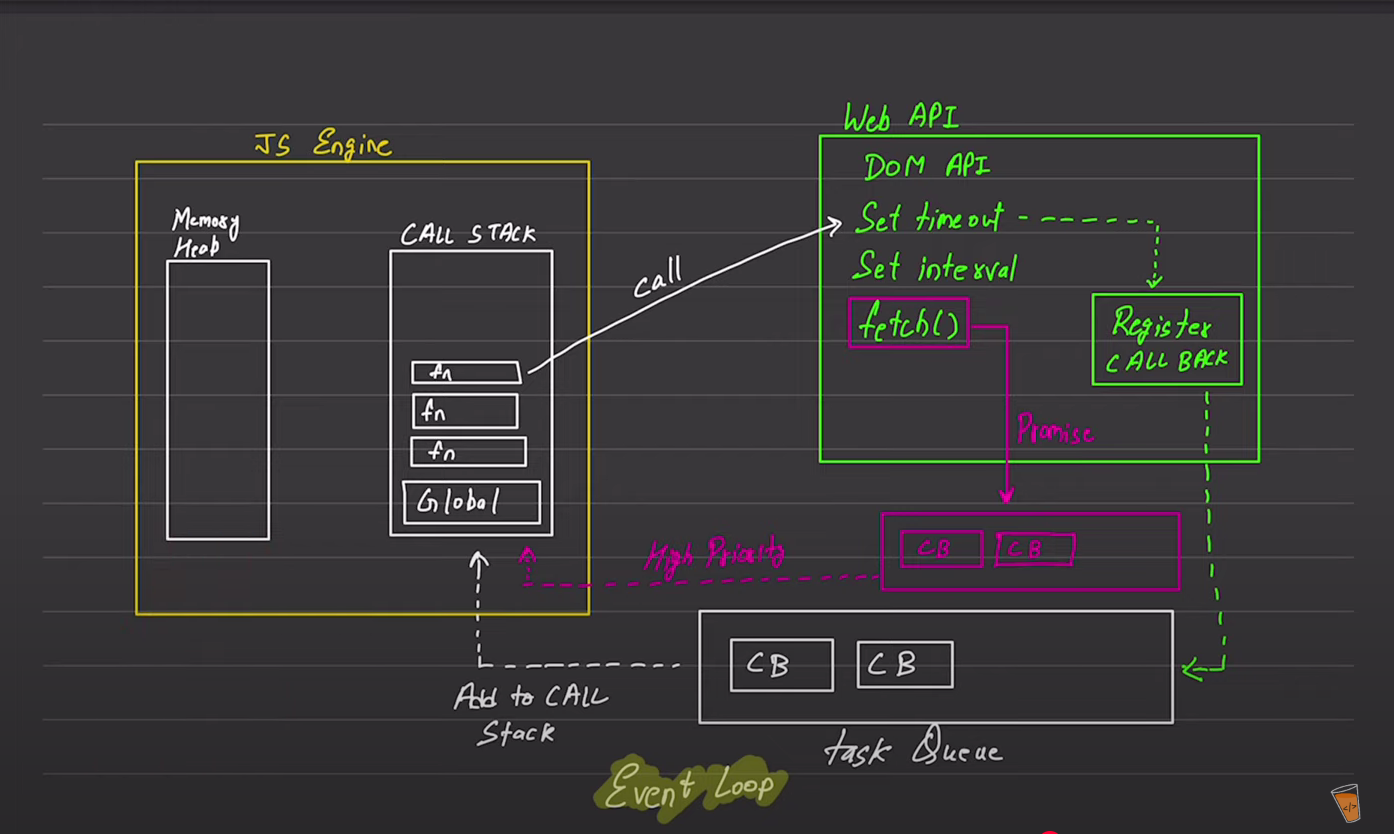 JS Engine
Memory
Heap
CALL STACK
fn
fn
fn
Global
call
Web API
DOM API
Set timeout
Set interval
fetch()
Register
CALL BACK
Promise
CB
CB
High Priority
CB
CB
Add to CALL
Stack
task Queue
Event Loop
</>